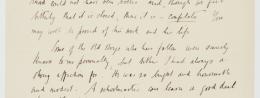 could not have been better and, though so few
that it is closed, there it is – You
may well be proud of his work and his life
Some of the Old Boys who have fallen were scarcely
known to me personally, but I had always a
strong affection for. He was so bright and
and modest. A schoolmaster can learn a good deal